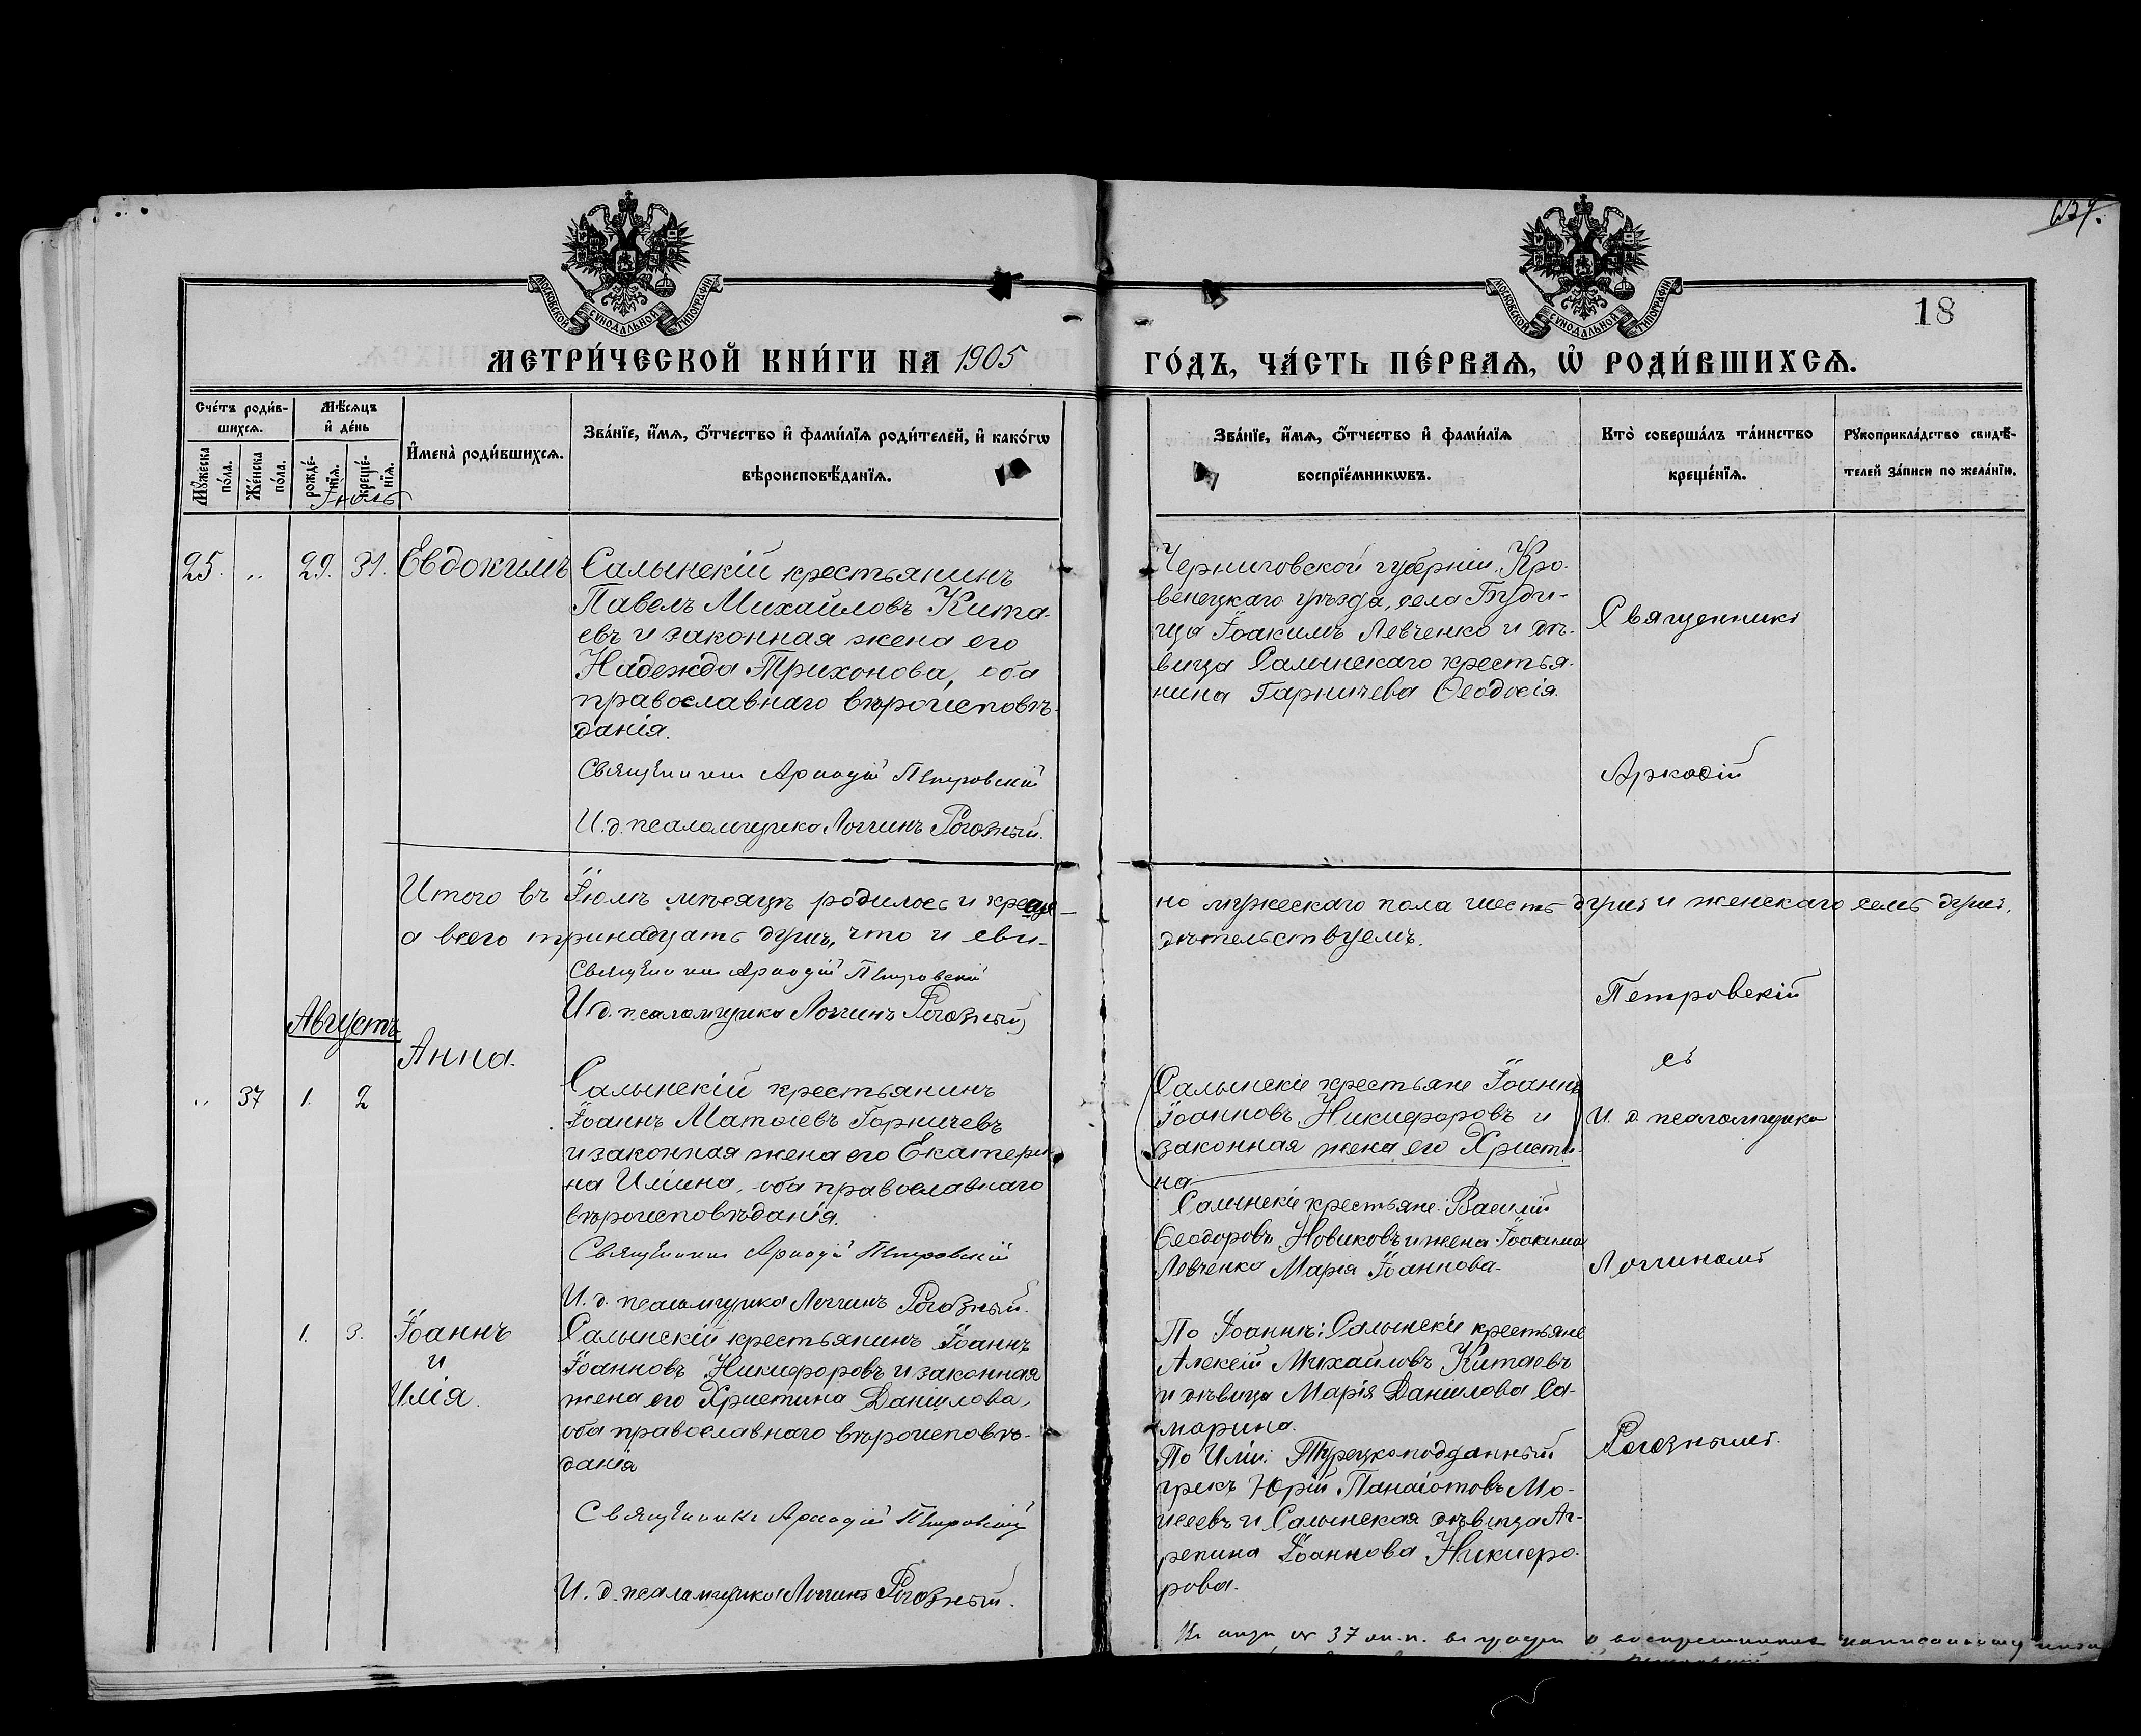 МОСКОВСКОЙ СѴНОДАЛЬНОЙ ТИПОГРАФІИ
МОСКОВСКОЙ СѴНОДАЛЬНОЙ ТИПОГРАФІИ
18
МЕТРИ́ЧЕСКОЙ КНИ́ГИ НА 1905
ГО́ДЪ, ЧА́СТЬ ПЕ́РВАѦ, Ѡ҆ РОДИ́ВШИХСѦ.
Сче́тъ роди́в-
шихсѧ.
Мꙋ́жеска по́ла.
Же́нска по́ла.
Мѣ́сѧцъ
и҆ де́нь
рожде́-
нїѧ.
креще́-
нїѧ.
И҆мена̀ роди́вшихсѧ.
Зва́нїе, и҆́мѧ, ѻ҆́тчество и҆ фами́лїѧ роди́телей, и҆ како́гѡ
вѣроисповѣ́данїѧ.
Зва́нїе, и҆́мѧ, ѻ҆́тчество и҆ фами́лїѧ
воспрїе́мникѡвъ.
Кто̀ соверша́лъ та́инство
креще́нїѧ.
Рꙋкоприкла́дство свидѣ́-
телей за́писи по жела́нїю.
Іюль
25. „ 29. 31. Евдокимъ
Салынскій крестьянинъ
Павелъ Михайловъ Кита-
евъ и законная жена его
Надежда Трихонова, оба
православнаго вѣроисповѣ-
данія.
Священникъ Аркадій Петровскій
И. д. псаломщика Логгинъ Рогозный.
Черниговской губерніи, Кро-
венецкаго уѣзда, села Буди-
ща Іоакимъ Левченко и дѣ-
вица Салынскаго крестья-
нина Гарничева Ѳеодосія.
Священникъ
Аркадій
Итого въ Іюлѣ мѣсяцѣ родилось и креще-
но мужескаго пола шесть душъ и женскаго семь душъ,
а всего тринадцать душъ, что и сви-
дѣтельствуемъ.
Священникъ Аркадій Петровскій
И. д. псаломщика Логгинъ Рогозный
Петровскій
съ
Августъ
„ 37 1. 2 Анна.
Салынскій крестьянинъ
Іоаннъ Матѳіевъ Горничевъ
и законная жена его Екатери-
на Иліина, оба православнаго
вѣроисповѣданія.
Священникъ Аркадій Петровскій
И. д. псаломщика Логгинъ Рогозный.
Салынскіе крестьяне Іоаннъ
Іоанновъ Никифоровъ и
законная жена его Христи-
на
Салынскіе крестьяне: Василій
Ѳеодоровъ Новиковъ и жена Іоакима
Левченко Марія Іоаннова.
И. д. псаломщика
Логгиномъ
1. 3. Іоаннъ
и
Илія.
Салынскій крестьянинъ Іоаннъ
Іоанновъ Никифоровъ и законная
жена его Христина Даніилова,
оба православнаго вѣроисповѣ-
данія
Священникъ Аркадій Петровскій
И. д. псаломщика Логгинъ Рогозный.
По Іоаннѣ: Салынскіе крестьяне
Алексій Михайловъ Китаевъ
и дѣвица Марія Даніилова Са-
марина.
По Иліи: Турецкоподданный
грекъ Юрій Панаіотовъ Мо-
исеевъ и Салынская дѣвица Аг-
репина Іоаннова Никифо-
рова.
Рогознымъ.
37 въ графѣ о воспріемникахъ